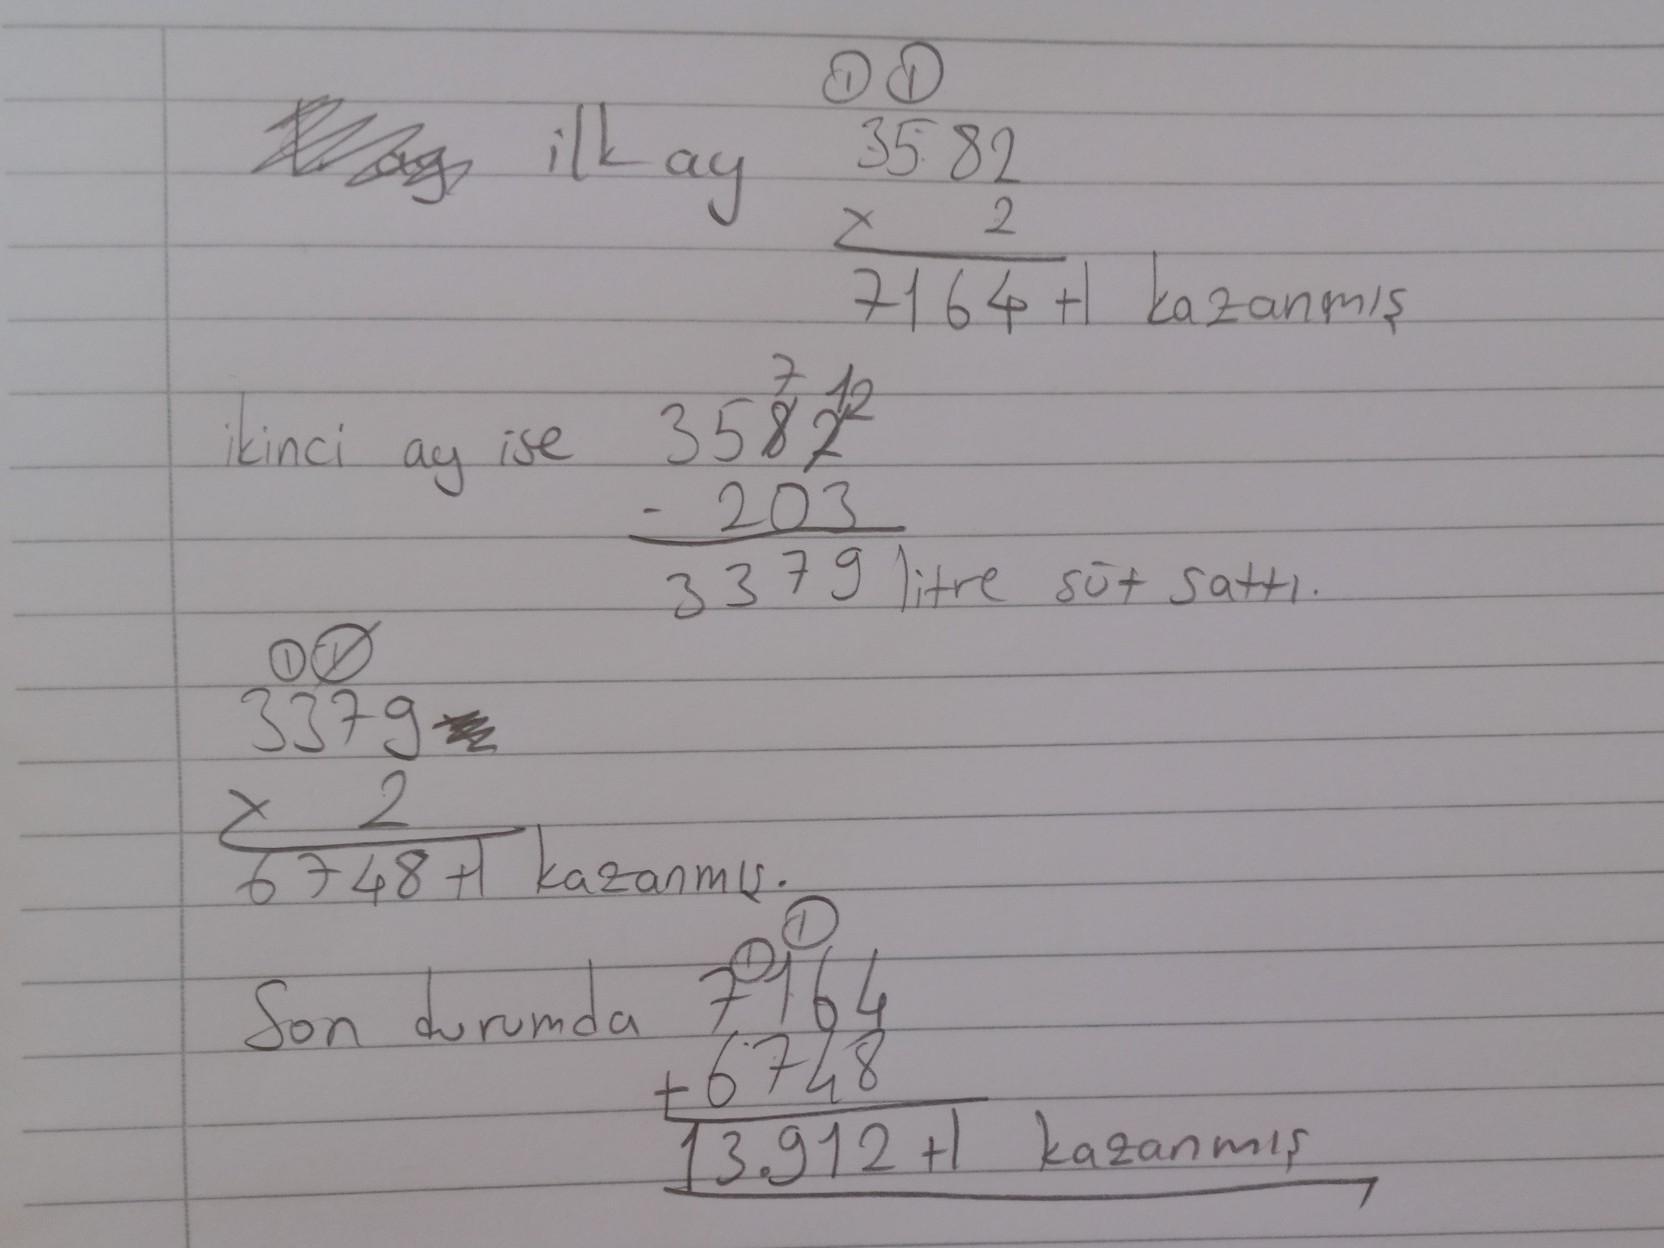 ① ①
ilk ay 3582
x 2
7164 tl kazanmış
7 12
ikinci ay ise 3582
- 203
3379 litre süt sattı.
① ①
3379
x 2
6748 tl kazanmış.
① ①
Son durumda 7164
+6748
13.912 tl kazanmış